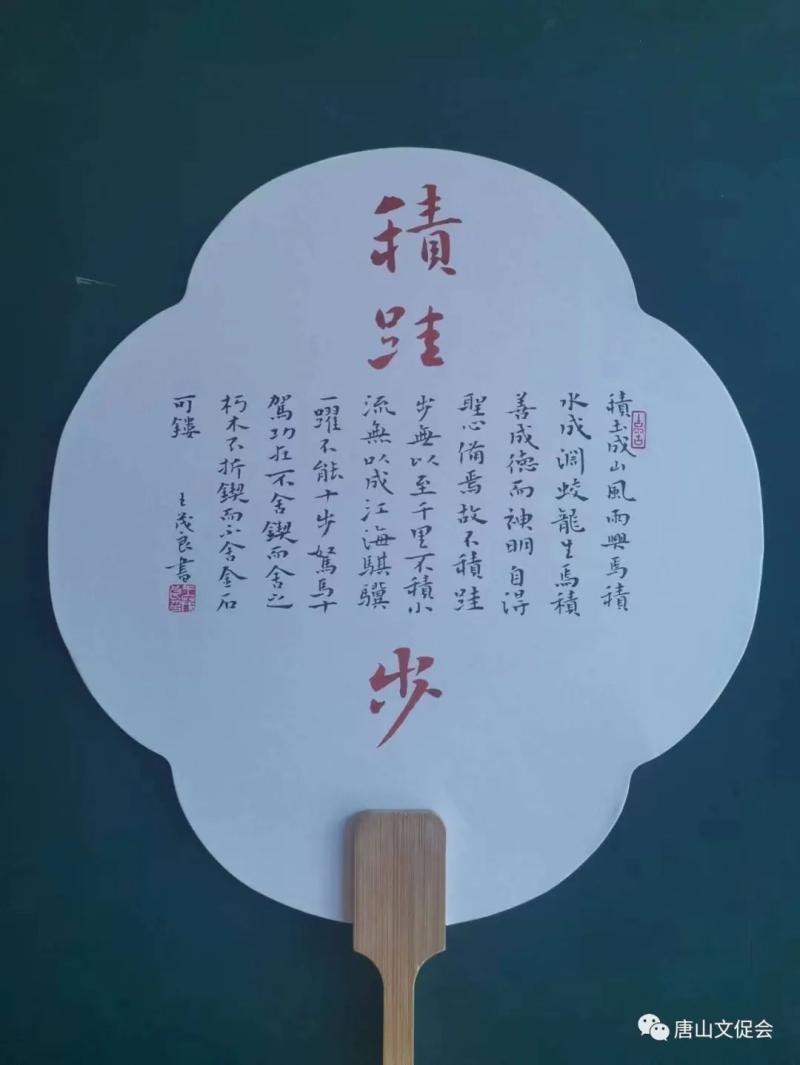 積跬步
積土成山風雨興焉積
水成淵蛟龍生焉積
善成德而神明自得
聖心備焉故不積跬
步無以至千里不積小
流無以成江海騏驥
一躍不能十步駑馬十
駕功在不舍鍥而舍之
朽木不折鍥而不舍金石
可鏤
王茂良書
唐山文促会